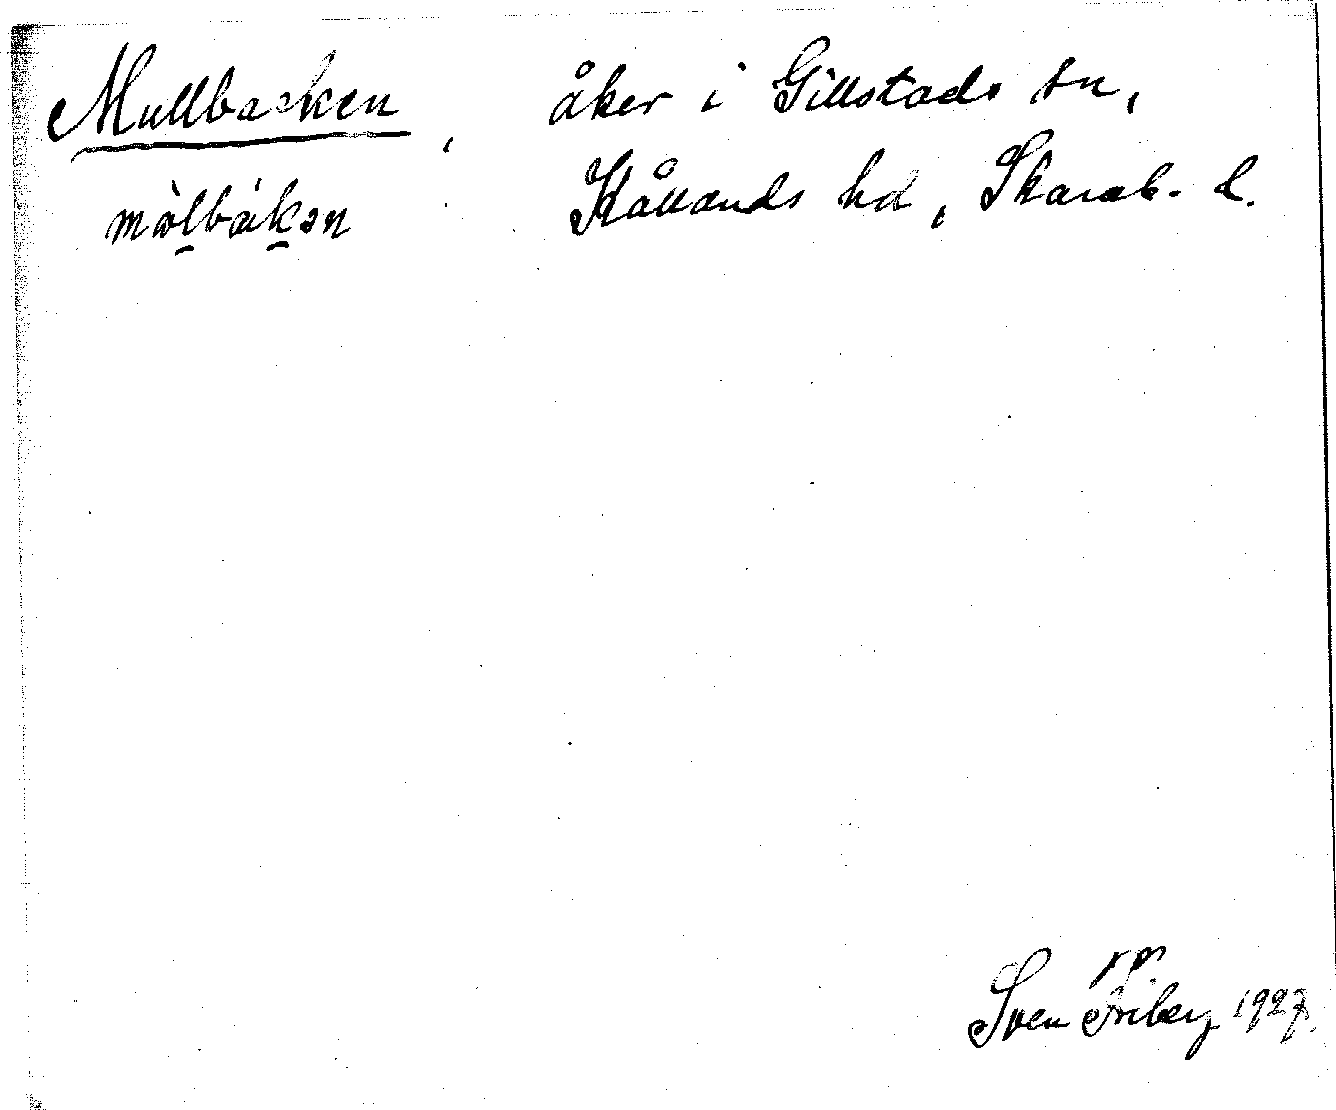 Mullbacken, åker i Gillstads sn,
mòlbákən Kållands hd, Skarab. l.
Sven Friberg 1927.